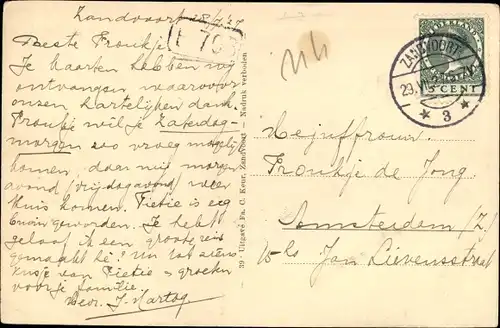 Zandvoort 28/7 '27
Beste Froukje
Je kaarten hebben wij
ontvangen waarvoor
onzen hartelijken dank.
Froukje wil je Zaterdag-
morgen zoo vroeg mogelijk
komen, daar wij morgen
avond (vrijdagavond) weer
thuis komen. Fietie is erg
bruin geworden. Je hebt
geloof ik een groote reis
gemaakt hè? Nu tot ziens
kusje van Fietie & groeten
voor je familie.
J. Hartog
39 - Uitgave Fa. C. Keur, Zandvoort - Nadruk verboden
NEDERLAND
5 CENT
ZANDVOORT
29.VII
3
Mejuffrouw
Froukje de Jong.
Amsterdam /Z.
Jan Lievensstraat